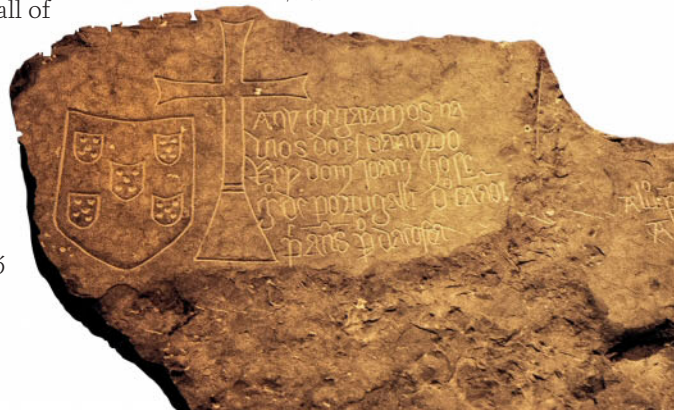 all of
Aqy chegaram os na
vios do esclarecido
Rey dom Joam ho seg
dº de portugall dº caão
pº añs pº da costa